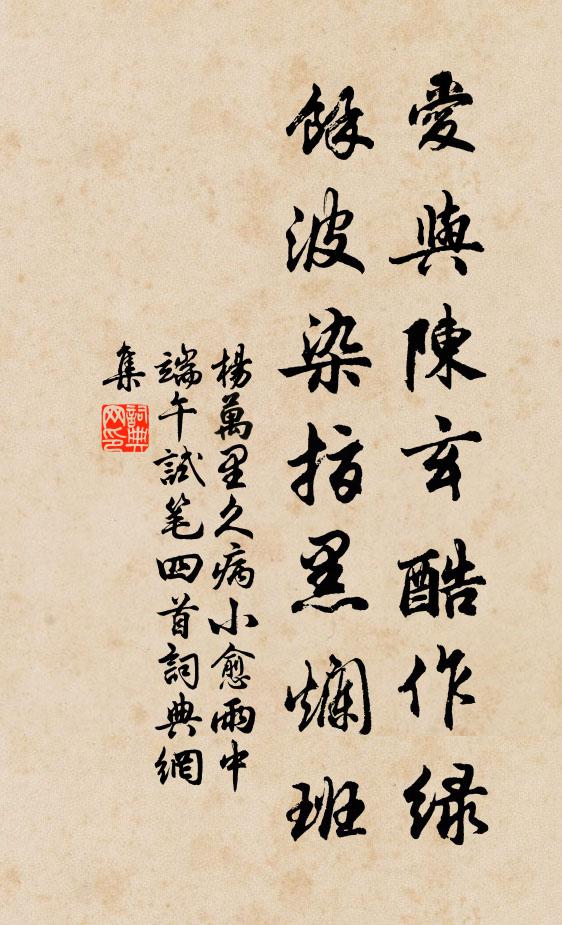 愛與陳玄酷作緑
餘波染指黑斕班
楊萬里久病小愈雨中
端午試笔四首詞典網
集
詞典网印